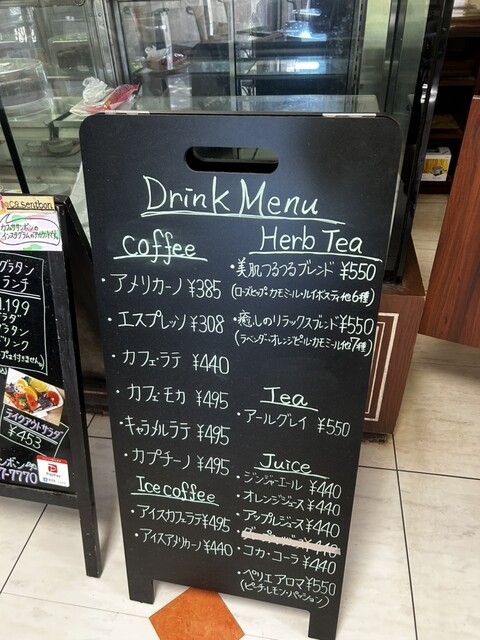 Drink Menu
coffee
・アメリカーノ ¥385
・エスプレッソ ¥308
・カフェ・ラテ ¥440
・カフェモカ ¥495
・キャラメルラテ ¥495
・カプチーノ ¥495
Ice coffee
・アイスカフェラテ ¥495
・アイスアメリカーノ ¥440
Herb Tea
・美肌つるつるブレンド ¥550
(ローズヒップ・カモミール・ルイボスティ他6種)
・癒しのリラックスブレンド ¥550
(ラベンダー・オレンジピール・カモミール他7種)
Tea
・アールグレイ ¥550
Juice
・ジンジャーエール ¥440
・オレンジジュース ¥440
・アップルジュース ¥440
・コカ・コーラ ¥440
・ペリエアロマ ¥550
(ピーチ・レモン・パッション)
ca.sentbon
カフェサンボンの
インスタグラムのアカウントです。
グラタン
ランチ
1,199
サラダ
グラタン
ドリンク
テイクアウトサラダ
¥453
7-7770